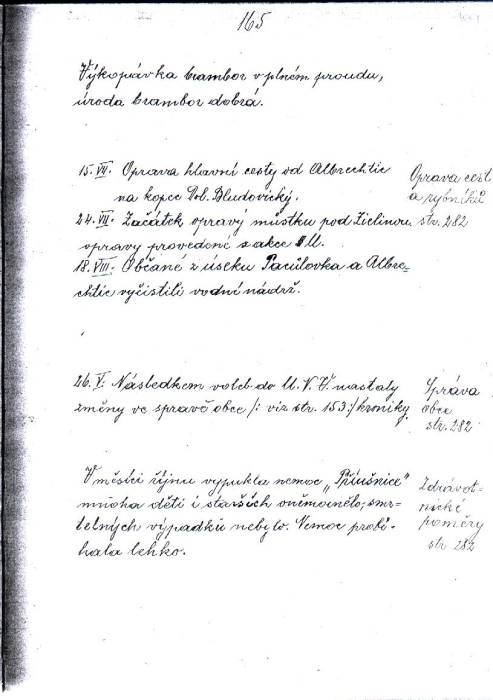 165
Výkopávka brambor v plném proudu,
úroda brambor dobrá.
15. VII. Oprava hlavní cesty od Albrechtic
na kopec Dol. Bludovický.
Oprava cest
a rybníků
24. VII. Začátek opravy můstku pod Zielinou
str. 282
opravy provedené s akce M.
18. VIII. Občané z úseku Pacůlovka a Albre-
chtic vyčistili vodní nádrž.
26. V. Následkem voleb do M. N. V. nastaly
změny ve spravě obce /: viz str. 153:/ kroniky
Správa
obce
str. 282
V měsíci říjnu vypukla nemoc „Příušnice"
mnoha dětí i starších oněmocnělo, smr-
telných výpadků nebylo. Nemoc probí-
hala lehko.
Zdrávot-
nické
poměry
str 282